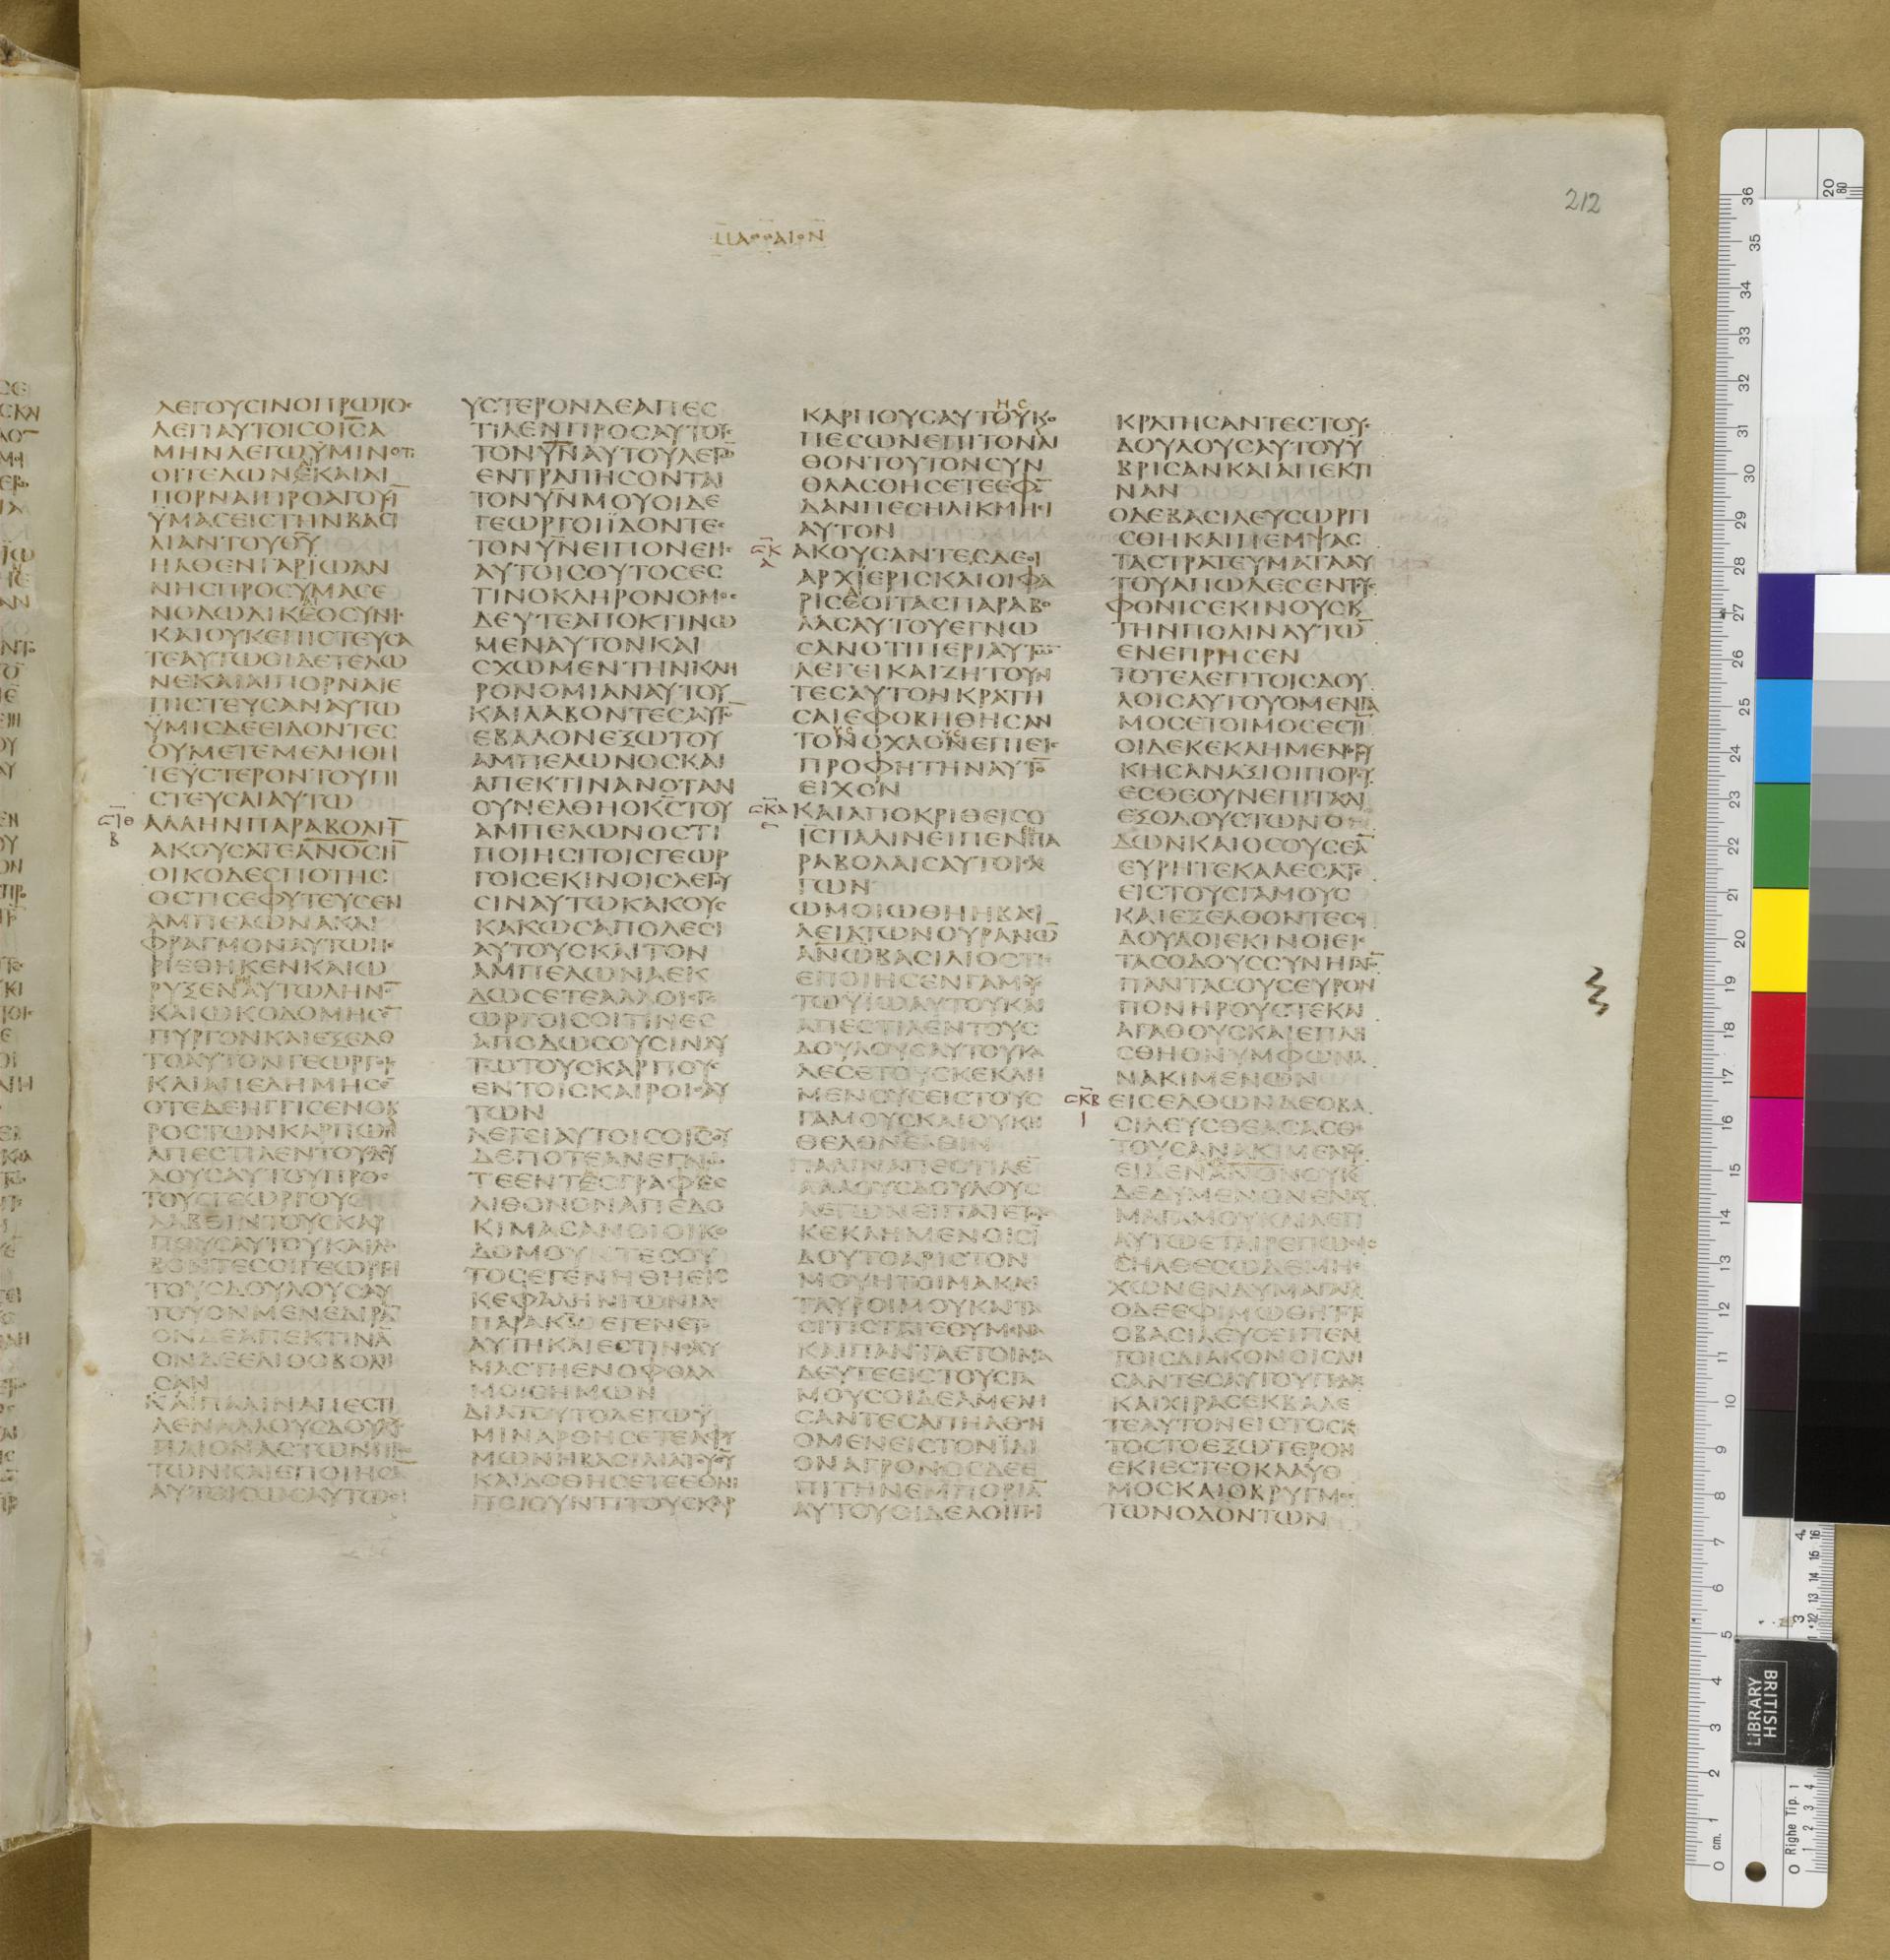 212
ΜΑΘΘΑΙΟΝ
ΛΕΓΟΥϹΙΝΟΠΡΩΤΟϹ
ΛΕΓΙΑΥΤΟΙϹΟΙϹΑ
ΜΗΝΛΕΓΩΫΜΙΝΟΤΙ
ΟΙΤΕΛΩΝΕΚΑΙΑΙ
ΠΟΡΝΑΙΠΡΟΑΓΟΥϹΙ
ΫΜΑϹΕΙϹΤΗΝΒΑϹΙ
ΛΙΑΝΤΟΥΘΥ
ΗΛΘΕΝΓΑΡΙΩΑΝ
ΝΗϹΠΡΟϹΥΜΑϹΕ
ΝΟΔΩΔΙΚΕΟϹΥΝΗϹ
ΚΑΙΟΥΚΕΠΙϹΤΕΥϹΑ
ΤΕΑΥΤΩΟΙΔΕΤΕΛΩ
ΝΕΚΑΙΑΙΠΟΡΝΑΙΕ
ΠΙϹΤΕΥϹΑΝΑΥΤΩ
ΫΜΙϹΔΕΕΙΔΟΝΤΕϹ
ΟΥΜΕΤΕΜΕΛΗΘΗ
ΤΕΥϹΤΕΡΟΝΤΟΥΠΙ
ϹΤΕΥϹΑΙΑΥΤΩ
ϹΙΘ
Β
ΑΛΛΗΝΠΑΡΑΒΟΛΗΝ
ΑΚΟΥϹΑΤΕΑΝΟϹΗΝ
ΟΙΚΟΔΕϹΠΟΤΗϹ
ΟϹΤΙϹΕΦΥΤΕΥϹΕΝ
ΑΜΠΕΛΩΝΑΚΑΙ
ΦΡΑΓΜΟΝΑΥΤΩΠΕ
ΡΙΕΘΗΚΕΝΚΑΙΩ
ΡΥΞΕΝΑΥΤΩΛΗΝΟ
ΚΑΙΩΚΟΔΟΜΗϹΕ
ΠΥΡΓΟΝΚΑΙΕΞΕΔΟ
ΤΟΑΥΤΟΝΓΕΩΡΓΟΙϹ
ΚΑΙΑΠΕΔΗΜΗϹΕ
ΟΤΕΔΕΗΓΓΙϹΕΝΟΚΑΙ
ΡΟϹΤΩΝΚΑΡΠΩΝ
ΑΠΕϹΤΙΛΕΝΤΟΥϹΔΟΥ
ΛΟΥϹΑΥΤΟΥΠΡΟϹ
ΤΟΥϹΓΕΩΡΓΟΥϹ
ΛΑΒΕΙΝΤΟΥϹΚΑΡ
ΠΟΥϹΑΥΤΟΥΚΑΙΛΑ
ΒΟΝΤΕϹΟΙΓΕΩΡΓΟΙ
ΤΟΥϹΔΟΥΛΟΥϹΑΥ
ΤΟΥΟΝΜΕΝΕΔΙΡΑ
ΟΝΔΕΑΠΕΚΤΙΝΑ
ΟΝΔΕΕΛΙΘΟΒΟΛΗ
ϹΑΝ
ΚΑΙΠΑΛΙΝΑΠΕϹΤΙ
ΛΕΝΑΛΛΟΥϹΔΟΥΛΟΥϹ
ΠΛΙΟΝΑϹΤΩΝΠΡΩ
ΤΩΝΚΑΙΕΠΟΙΗϹΑ
ΑΥΤΟΙϹΩϹΑΥΤΩϹ
ΥϹΤΕΡΟΝΔΕΑΠΕϹ
ΤΙΛΕΝΠΡΟϹΑΥΤΟΥϹ
ΤΟΝΥΝΑΥΤΟΥΛΕΓΩ
ΕΝΤΡΑΠΗϹΟΝΤΑΙ
ΤΟΝΥΝΜΟΥΟΙΔΕ
ΓΕΩΡΓΟΙΪΔΟΝΤΕϹ
ΤΟΝΥΝΕΙΠΟΝΕΝ
ΑΥΤΟΙϹΟΥΤΟϹΕϹ
ΤΙΝΟΚΛΗΡΟΝΟΜΟϹ
ΔΕΥΤΕΑΠΟΚΤΙΝΩ
ΜΕΝΑΥΤΟΝΚΑΙ
ϹΧΩΜΕΝΤΗΝΚΛΗ
ΡΟΝΟΜΙΑΝΑΥΤΟΥ
ΚΑΙΛΑΒΟΝΤΕϹΑΥΤΟ
ΕΒΑΛΟΝΕΞΩΤΟΥ
ΑΜΠΕΛΩΝΟϹΚΑΙ
ΑΠΕΚΤΙΝΑΝΟΤΑΝ
ΟΥΝΕΛΘΗΟΚϹΤΟΥ
ΑΜΠΕΛΩΝΟϹΤΙ
ΠΟΙΗϹΙΤΟΙϹΓΕΩΡ
ΓΟΙϹΕΚΙΝΟΙϹΛΕΓΟΥ
ϹΙΝΑΥΤΩΚΑΚΟΥϹ
ΚΑΚΩϹΑΠΟΛΕϹΙ
ΑΥΤΟΥϹΚΑΙΤΟΝ
ΑΜΠΕΛΩΝΑΕΚ
ΔΩϹΕΤΕΑΛΛΟΙϹΓΕ
ΩΡΓΟΙϹΟΙΤΙΝΕϹ
ΑΠΟΔΩϹΟΥϹΙΝΑΥ
ΤΩΤΟΥϹΚΑΡΠΟΥϹ
ΕΝΤΟΙϹΚΑΙΡΟΙϹΑΥ
ΤΩΝ
ΛΕΓΕΙΑΥΤΟΙϹΟΙϹΟΥ
ΔΕΠΟΤΕΑΝΕΓΝΩ
ΤΕΕΝΤΕϹΓΡΑΦΕϹ
ΛΙΘΟΝΟΝΑΠΕΔΟ
ΚΙΜΑϹΑΝΟΙΟΙΚΟ
ΔΟΜΟΥΝΤΕϹΟΥ
ΤΟϹΕΓΕΝΗΘΗΕΙϹ
ΚΕΦΑΛΗΝΓΩΝΙΑϹ
ΠΑΡΑΚΥΕΓΕΝΕΤΟ
ΑΥΤΗΚΑΙΕϹΤΙΝΘΑΥ
ΜΑϹΤΗΕΝΟΦΘΑΛ
ΜΟΙϹΗΜΩΝ
ΔΙΑΤΟΥΤΟΛΕΓΩΫ
ΜΙΝΑΡΘΗϹΕΤΕΑΦΥ
ΜΩΝΗΒΑϹΙΛΙΑΤΟΥΘΥ
ΚΑΙΔΟΘΗϹΕΤΕΕΘΝΙ
ΠΟΙΟΥΝΤΙΤΟΥϹΚΑΡ
ΚΑΡΠΟΥϹΑΥΤΟΥΚΟ
ΠΕϹΩΝΕΠΙΤΟΝΛΙ
ΘΟΝΤΟΥΤΟΝϹΥΝ
ΘΛΑϹΘΗϹΕΤΕΕΦΟ
ΔΑΝΠΕϹΗΛΙΚΜΗϹΙ
ΑΥΤΟΝ
ϹΚ
Α
ΑΚΟΥϹΑΝΤΕϹΔΕΟΙ
ΑΡΧΙΕΡΙϹΚΑΙΟΙΦΑ
ΡΙϹΕΟΙΤΑϹΠΑΡΑΒΟ
ΛΑϹΑΥΤΟΥΕΓΝΩ
ϹΑΝΟΤΙΠΕΡΙΑΥΤΩ
ΛΕΓΕΙΚΑΙΖΗΤΟΥΝ
ΤΕϹΑΥΤΟΝΚΡΑΤΗ
ϹΑΙΕΦΟΒΗΘΗϹΑΝ
ΤΟΝΟΧΛΟΝΕΠΙΕΙϹ
ΠΡΟΦΗΤΗΝΑΥΤΟ
ΕΙΧΟΝ
ϹΚΑ
ΚΑΙΑΠΟΚΡΙΘΕΙϹΟ
ΙϹΠΑΛΙΝΕΙΠΕΝΠΑ
ΡΑΒΟΛΑΙϹΑΥΤΟΙϹΛΕ
ΓΩΝ
ΩΜΟΙΩΘΗΗΒΑϹΙ
ΛΕΙΑΤΩΝΟΥΡΑΝΩ
ΑΝΩΒΑϹΙΛΙΟϹΤΙϹ
ΕΠΟΙΗϹΕΝΓΑΜΟΥϹ
ΤΩΥΪΩΑΥΤΟΥΚΑΙ
ΑΠΕϹΤΙΛΕΝΤΟΥϹ
ΔΟΥΛΟΥϹΑΥΤΟΥΚΑ
ΛΕϹΕΤΟΥϹΚΕΚΛΗ
ΜΕΝΟΥϹΕΙϹΤΟΥϹ
ΓΑΜΟΥϹΚΑΙΟΥΚΗ
ΘΕΛΟΝΕΛΘΙΝ
ΠΑΛΙΝΑΠΕϹΤΙΛΕ
ΑΛΛΟΥϹΔΟΥΛΟΥϹ
ΛΕΓΩΝΕΙΠΑΤΕΤΟΙϹ
ΚΕΚΛΗΜΕΝΟΙϹΙ
ΔΟΥΤΟΑΡΙϹΤΟΝ
ΜΟΥΗΤΟΙΜΑΚΑΟΙ
ΤΑΥΡΟΙΜΟΥΚΑΙΤΑ
ϹΙΤΙϹΤΑΤΕΘΥΜΕΝΑ
ΚΑΙΠΑΝΤΑΕΤΟΙΜΑ
ΔΕΥΤΕΕΙϹΤΟΥϹΓΑ
ΜΟΥϹΟΙΔΕΑΜΕΛΗ
ϹΑΝΤΕϹΑΠΗΛΘΟΝ
ΟΜΕΝΕΙϹΤΟΝΪΔΙ
ΟΝΑΓΡΟΝΟϹΔΕΕ
ΠΙΤΗΝΕΜΠΟΡΙΑ
ΑΥΤΟΥΟΙΔΕΛΟΙΠΟΙ
ΚΡΑΤΗϹΑΝΤΕϹΤΟΥϹ
ΔΟΥΛΟΥϹΑΥΤΟΥΫ
ΒΡΙϹΑΝΚΑΙΑΠΕΚΤΙ
ΝΑΝ
ΟΔΕΒΑϹΙΛΕΥϹΩΡΓΙ
ϹΘΗΚΑΙΠΕΜΨΑϹ
ΤΑϹΤΡΑΤΕΥΜΑΤΑΑΥ
ΤΟΥΑΠΩΛΕϹΕΝΤΟΥϹ
ΦΟΝΙϹΕΚΙΝΟΥϹΚ
ΤΗΝΠΟΛΙΝΑΥΤΩ
ΕΝΕΠΡΗϹΕΝ
ΤΟΤΕΛΕΓΙΤΟΙϹΔΟΥ
ΛΟΙϹΑΥΤΟΥΟΜΕΝΓΑ
ΜΟϹΕΤΟΙΜΟϹΕϹΤΙ
ΟΙΔΕΚΕΚΛΗΜΕΝΟΙΟΥ
ΚΗϹΑΝΑΞΙΟΙΠΟΡΕΥ
ΕϹΘΕΟΥΝΕΠΙΤΑϹΔΙ
ΕΞΟΔΟΥϹΤΩΝΟ
ΔΩΝΚΑΙΟϹΟΥϹΕΑ
ΕΥΡΗΤΕΚΑΛΕϹΑΤΕ
ΕΙϹΤΟΥϹΓΑΜΟΥϹ
ΚΑΙΕΞΕΛΘΟΝΤΕϹΟΙ
ΔΟΥΛΟΙΕΚΙΝΟΙΕΙϹ
ΤΑϹΟΔΟΥϹϹΥΝΗΓΑΓΟ
ΠΑΝΤΑϹΟΥϹΕΥΡΟΝ
ΠΟΝΗΡΟΥϹΤΕΚΑΙ
ΑΓΑΘΟΥϹΚΑΙΕΠΛΗ
ϹΘΗΟΝΥΜΦΩΝΑ
ΝΑΚΙΜΕΝΩΝ
ϹΚΒ
Ι
ΕΙϹΕΛΘΩΝΔΕΟΒΑ
ϹΙΛΕΥϹΘΕΑϹΑϹΘΕ
ΤΟΥϹΑΝΑΚΙΜΕΝΟΥϹ
ΕΙΔΕΝΑΝΟΝΟΥΚ
ΔΕΔΥΜΕΝΟΝΕΝΔΥ
ΜΑΓΑΜΟΥΚΑΙΛΕΓΙ
ΑΥΤΩΕΤΑΙΡΕΠΩϹ
ΗΛΘΕϹΩΔΕΜΗΕ
ΧΩΝΕΝΔΥΜΑΓΑΜΟΥ
ΟΔΕΕΦΙΜΩΘΗΤΟΤΕ
ΟΒΑϹΙΛΕΥϹΕΙΠΕΝ
ΤΟΙϹΔΙΑΚΟΝΟΙϹΔΗ
ϹΑΝΤΕϹΑΥΤΟΥΠΟΔΑϹ
ΚΑΙΧΙΡΑϹΕΚΒΑΛΕ
ΤΕΑΥΤΟΝΕΙϹΤΟϹΚ
ΤΟϹΤΟΕΞΩΤΕΡΟΝ
ΕΚΙΕϹΤΕΟΚΛΑΥΘ
ΜΟϹΚΑΙΟΒΡΥΓΜΟϹ
ΤΩΝΟΔΟΝΤΩΝ
BRITISH
LIBRARY